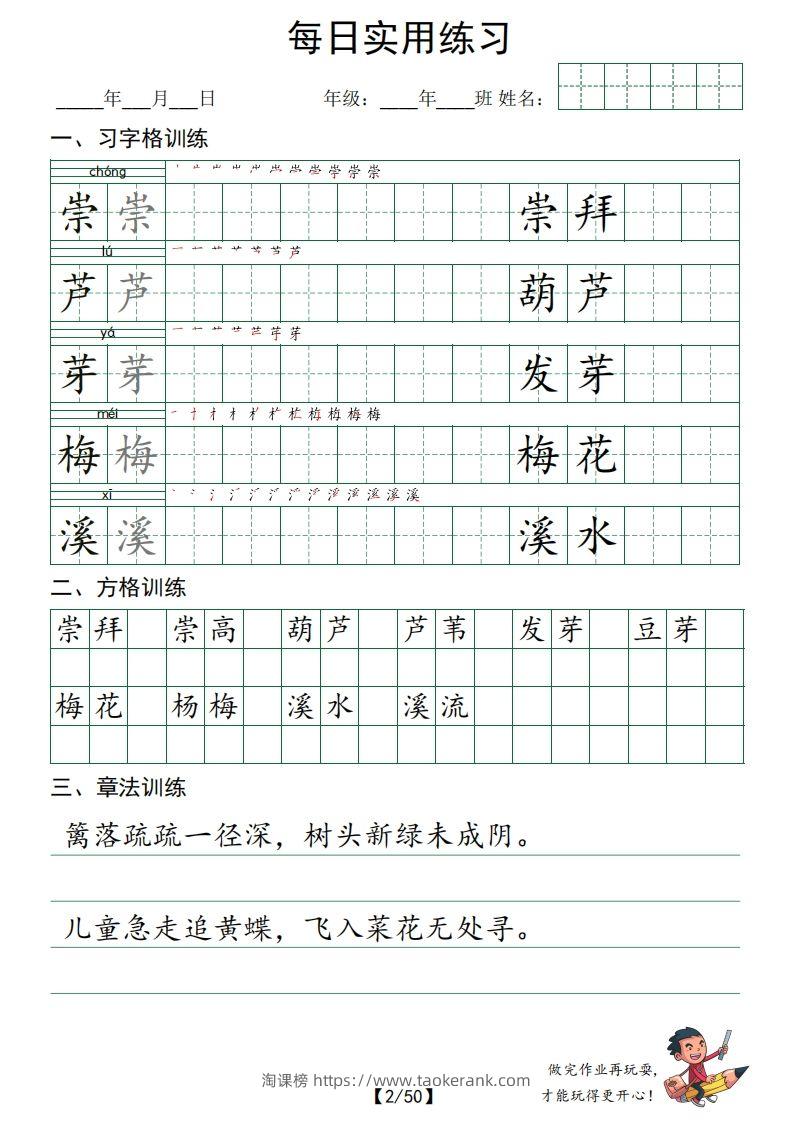 每日实用练习
_____年___月___日 年级：____年____班 姓名：
一、习字格训练
chóng
崇 崇 崇 拜
lú
芦 芦 葫 芦
yá
芽 芽 发 芽
méi
梅 梅 梅 花
xī
溪 溪 溪 水
二、方格训练
崇 拜 崇 高 葫 芦 芦 苇 发 芽 豆 芽
梅 花 杨 梅 溪 水 溪 流
三、章法训练
篱落疏疏一径深，树头新绿未成阴。
儿童急走追黄蝶，飞入菜花无处寻。
做完作业再玩耍，
才能玩得更开心！
淘课榜 https://www.taokerank.com
【2/50】